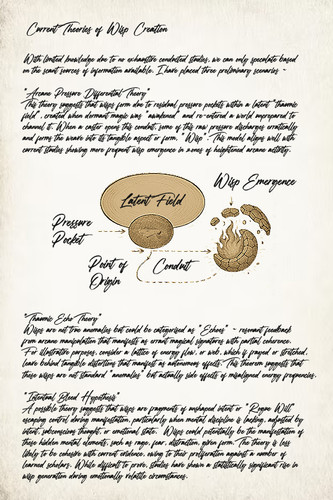 Current Theories of Wisp Creation
With limited knowledge due to no exhaustive conducted studies, we can only speculate based
on the scant sources of information available. I have placed three preliminary scenarios -
"Arcane Pressure Differential Theory"
This theory suggests that wisps form due to residual pressure pockets within a latent "thaumic
field", created when dormant magic was "awakened" and re-entered a world unprepared to
channel it. When a caster opens this conduit, some of this raw pressure discharges erratically
and forms the weave into its tangible order or form. "Wisp". This model aligns well with
current studies showing more frequent wisp emergence in areas of heightened arcane activity.
Wisp Emergence
Latent Field
Pressure
Pocket
Point of
Origin
Conduit
"Thaumic Echo Theory"
Wisps are not true anomalies but could be categorised as "Echoes" - resonant feedback
from arcane manipulation that manifests as errant magical signatures with partial coherence.
For illustrative purposes, consider a lattice of energy flow, or web, which if frayed or stretched,
leave behind tangible distortions that manifest as autonomous effects. This theorem suggests that
these wisps are not standard "anomalies" but actually side effects of misaligned energy frequencies.
"Intentual Bleed Hypothesis"
A possible theory suggests that wisps are fragments of unshaped intent or "Rogue Will"
escaping control during manipulation, particularly when mental discipline is lacking, adjusted by
intent, subconscious thought, or emotional state. Wisps could potentially be the manifestation of
these hidden mental elements, such as rage, fear, distraction, given form. The theory is less
likely to be cohesive with current evidence, owing to their proliferation against a number of
learned scholars. While difficult to prove, studies have shown a statistically significant rise in
wisp generation during emotionally volatile circumstances.